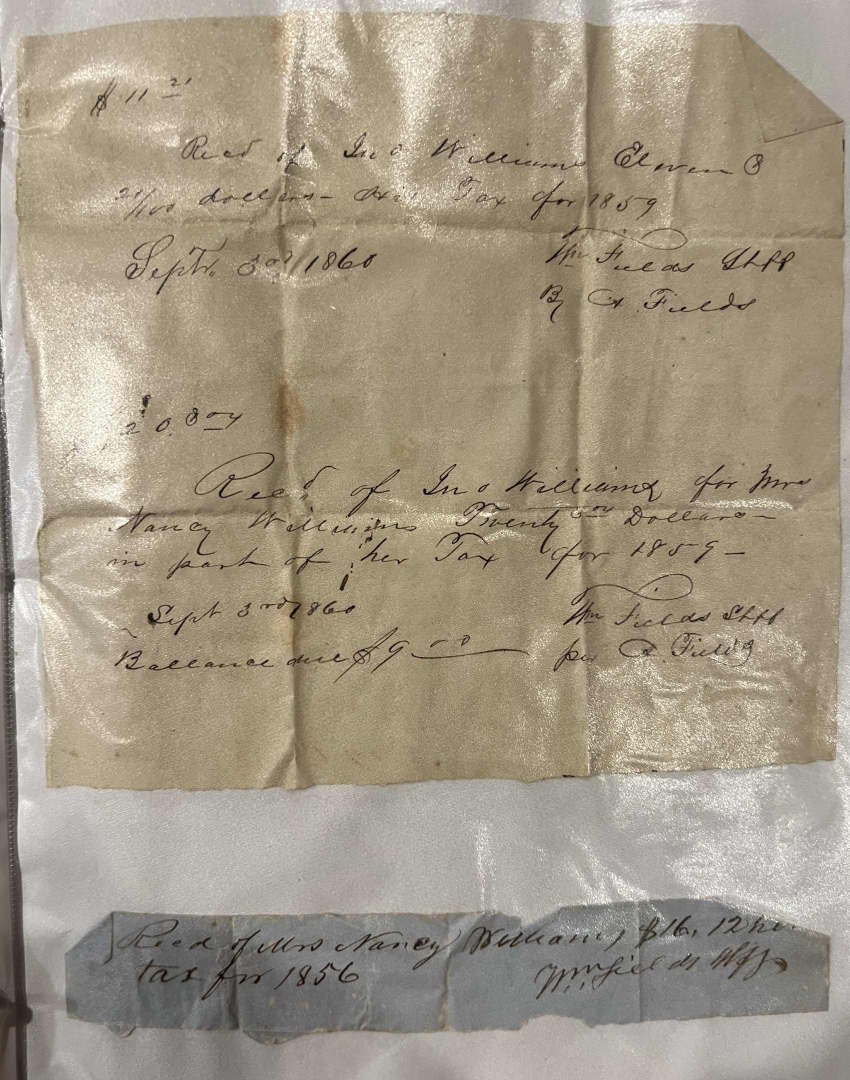 $ 11 21
Recd of Jno Williams Eleven &
21/100 dollars - Tax for 1859
Septr. 3rd 1860 Wm Fields Shff
By A Fields
20.
Recd. of Jno Williams for Mrs
Nancy Williams Twenty Dollars -
in part of her Tax for 1859 -
Sept 3rd 1860 Wm Fields Shff
Ballance due $9 00 per A. Fields
Recd of Mrs Nancy Williams $16. 12 her
tax for 1856 Wm Fields Shff